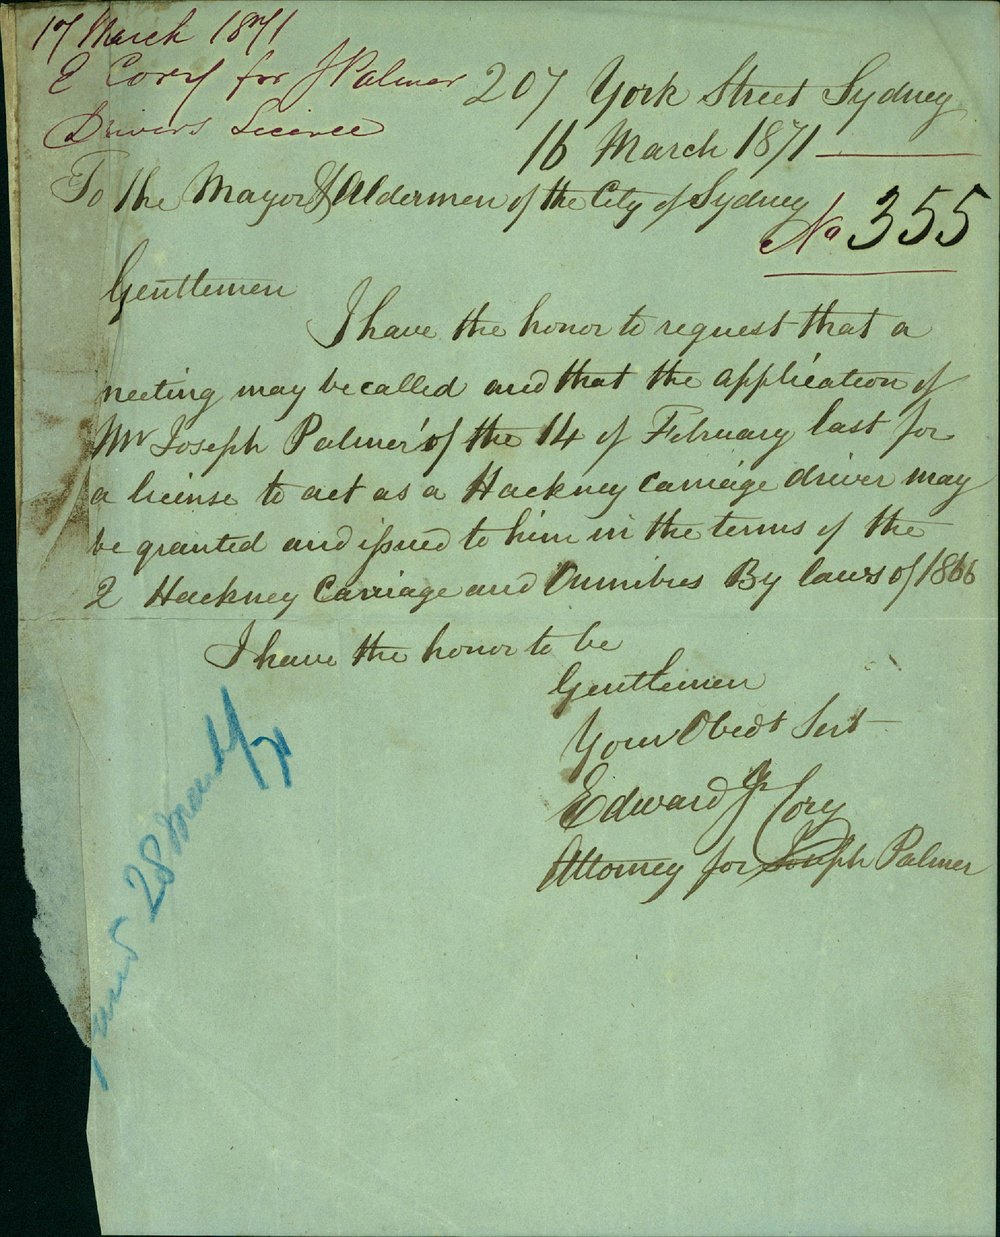 17 March 1871
E Cory for J Palmer
Drivers Licence
207 York Street Sydney
16 March 1871
To the Mayor & Aldermen of the City of Sydney
No 355
Gentlemen
I have the honor to request that a
meeting may be called and that the application of
Mr Joseph Palmer of the 14 of February last for
a license to act as a Hackney carriage driver may
be granted and issued to him in the terms of the
2 Hackney Carriage and Omnibus By laws of 1866
I have the honor to be
Gentlemen
Your Obedt Sert
Edward J Cory
Attorney for Joseph Palmer
28 March/71